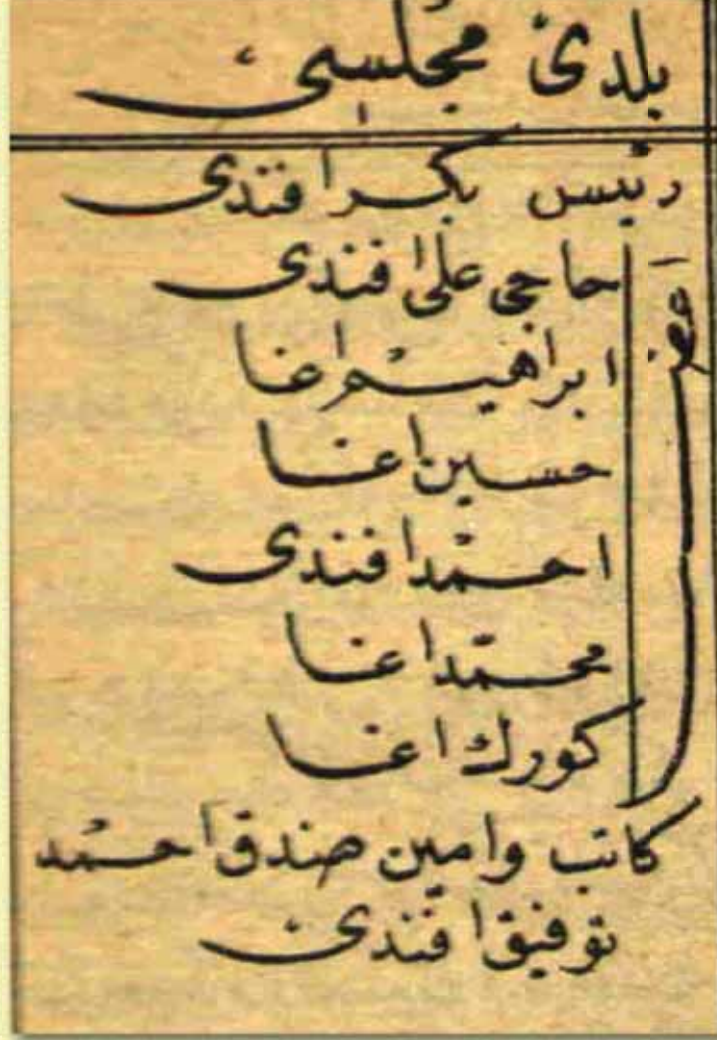 بلدی مجلسی
رئیس بکر افندی
اعضا
حاجی علی افندی
ابراهیم اغا
حسین اغا
احمد افندی
محمد اغا
کورك اغا
کاتب وامین صندق احمد
توفیق افندی